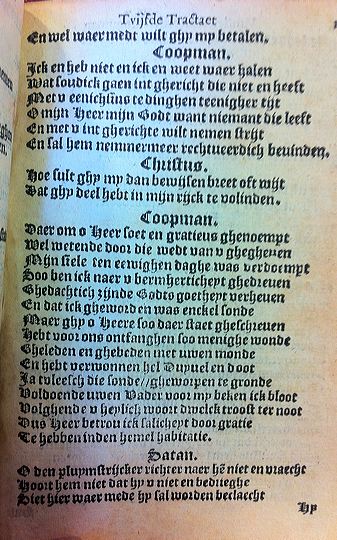 Tvijfde Tractaet
En wel waer medt wilt ghy my betalen.
Coopman.
Ick en heb niet en ick en weet waer halen
Wat soudick gaen int ghericht die niet en heeft
Met v eenichsins te dinghen teenigher tijt
O mijn Heer mijn Godt want niemant die leeft
En met v int gherichte wilt nemen strijt
En sal hem nemmermeer rechtueerdich beuinden.
Christus.
Hoe sult ghy my dan bewijsen breet oft wijt
Dat ghy deel hebt in mijn rijck te volinden.
Coopman.
Daer om o Heer soet en gratieus ghenoempt
Wel wetende door die wedt van v ghegheuen
Mijn siele ten eewighen daghe was verdoempt
Soo ben ick naer v bermherticheyt ghedreuen
Ghedachtich zijnde Godts goetheyt verheuen
En dat ick gheworden was enckel sonde
Maer ghy o Heere soo daer staet gheschreuen
Hebt voor ons ontfanghen soo menighe wonde
Gheleden en ghebeden met uwen monde
En hebt verwonnen hel Duyuel en doot
Ja tvleesch die sonde//gheworpen te gronde
Voldoende uwen Vader voor my beken ick bloot
Volghende v heylich woort dwelck troost ter noot
Dus Heer betrou ick salicheyt door gratie
Te hebben inden hemel habitatie.
Satan.
O den pluymstrijcker richter naer hē niet en vraecht
Hoort hem niet dat hy v niet en bedrieghe
Siet hier waer mede hy sal worden beclaecht
Hy